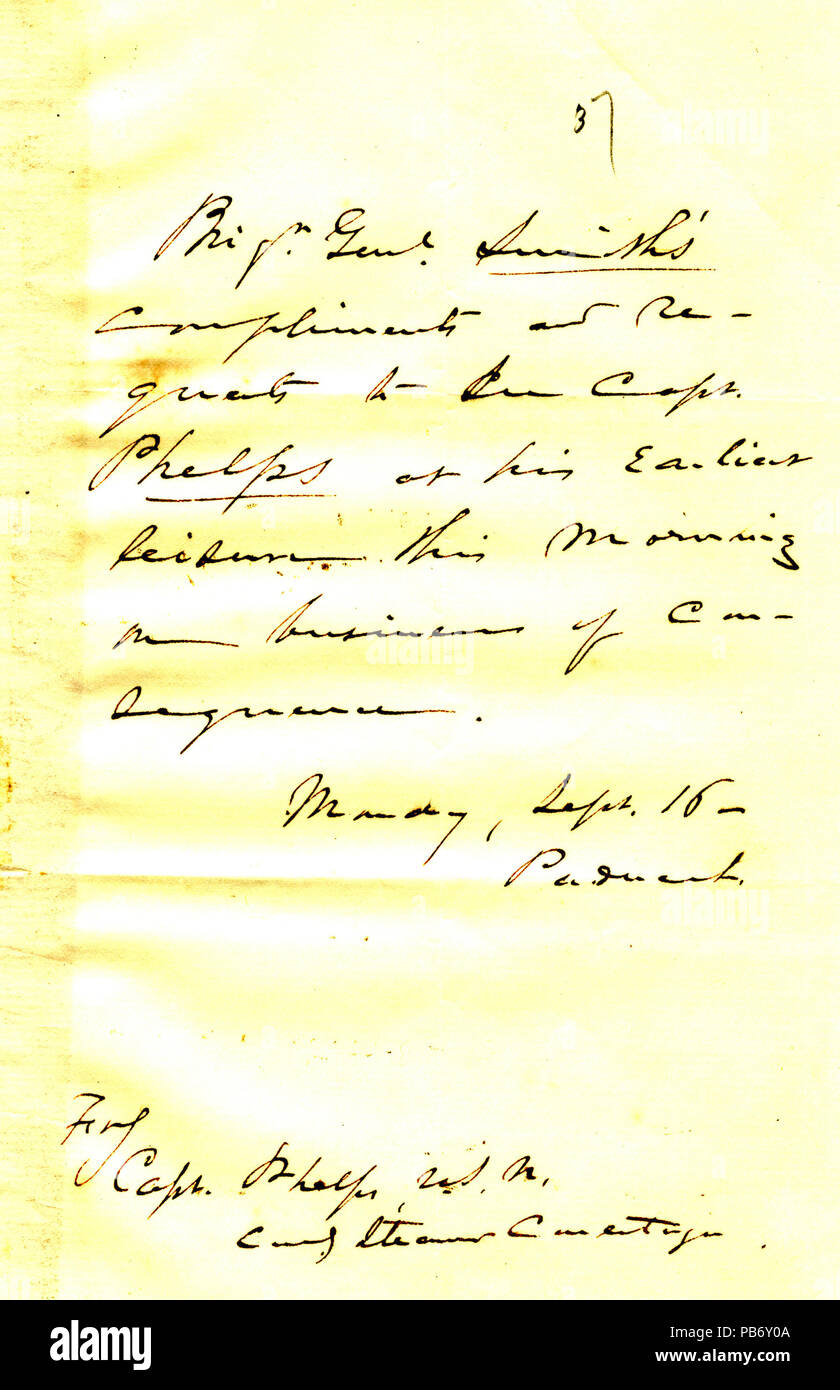 37
Brigr. Genl. Smith's
compliments and re-
quests to see Capt.
Phelps at his Earliest
leisure this Morning
on business of con-
sequence.
Monday, Sept. 16-
Paducah.
For
Capt. Phelps, U.S.N.
Comdg Steamer Conestoga.
alamy
alamy
alamy
alamy
Image ID: PB6Y0A
www.alamy.com